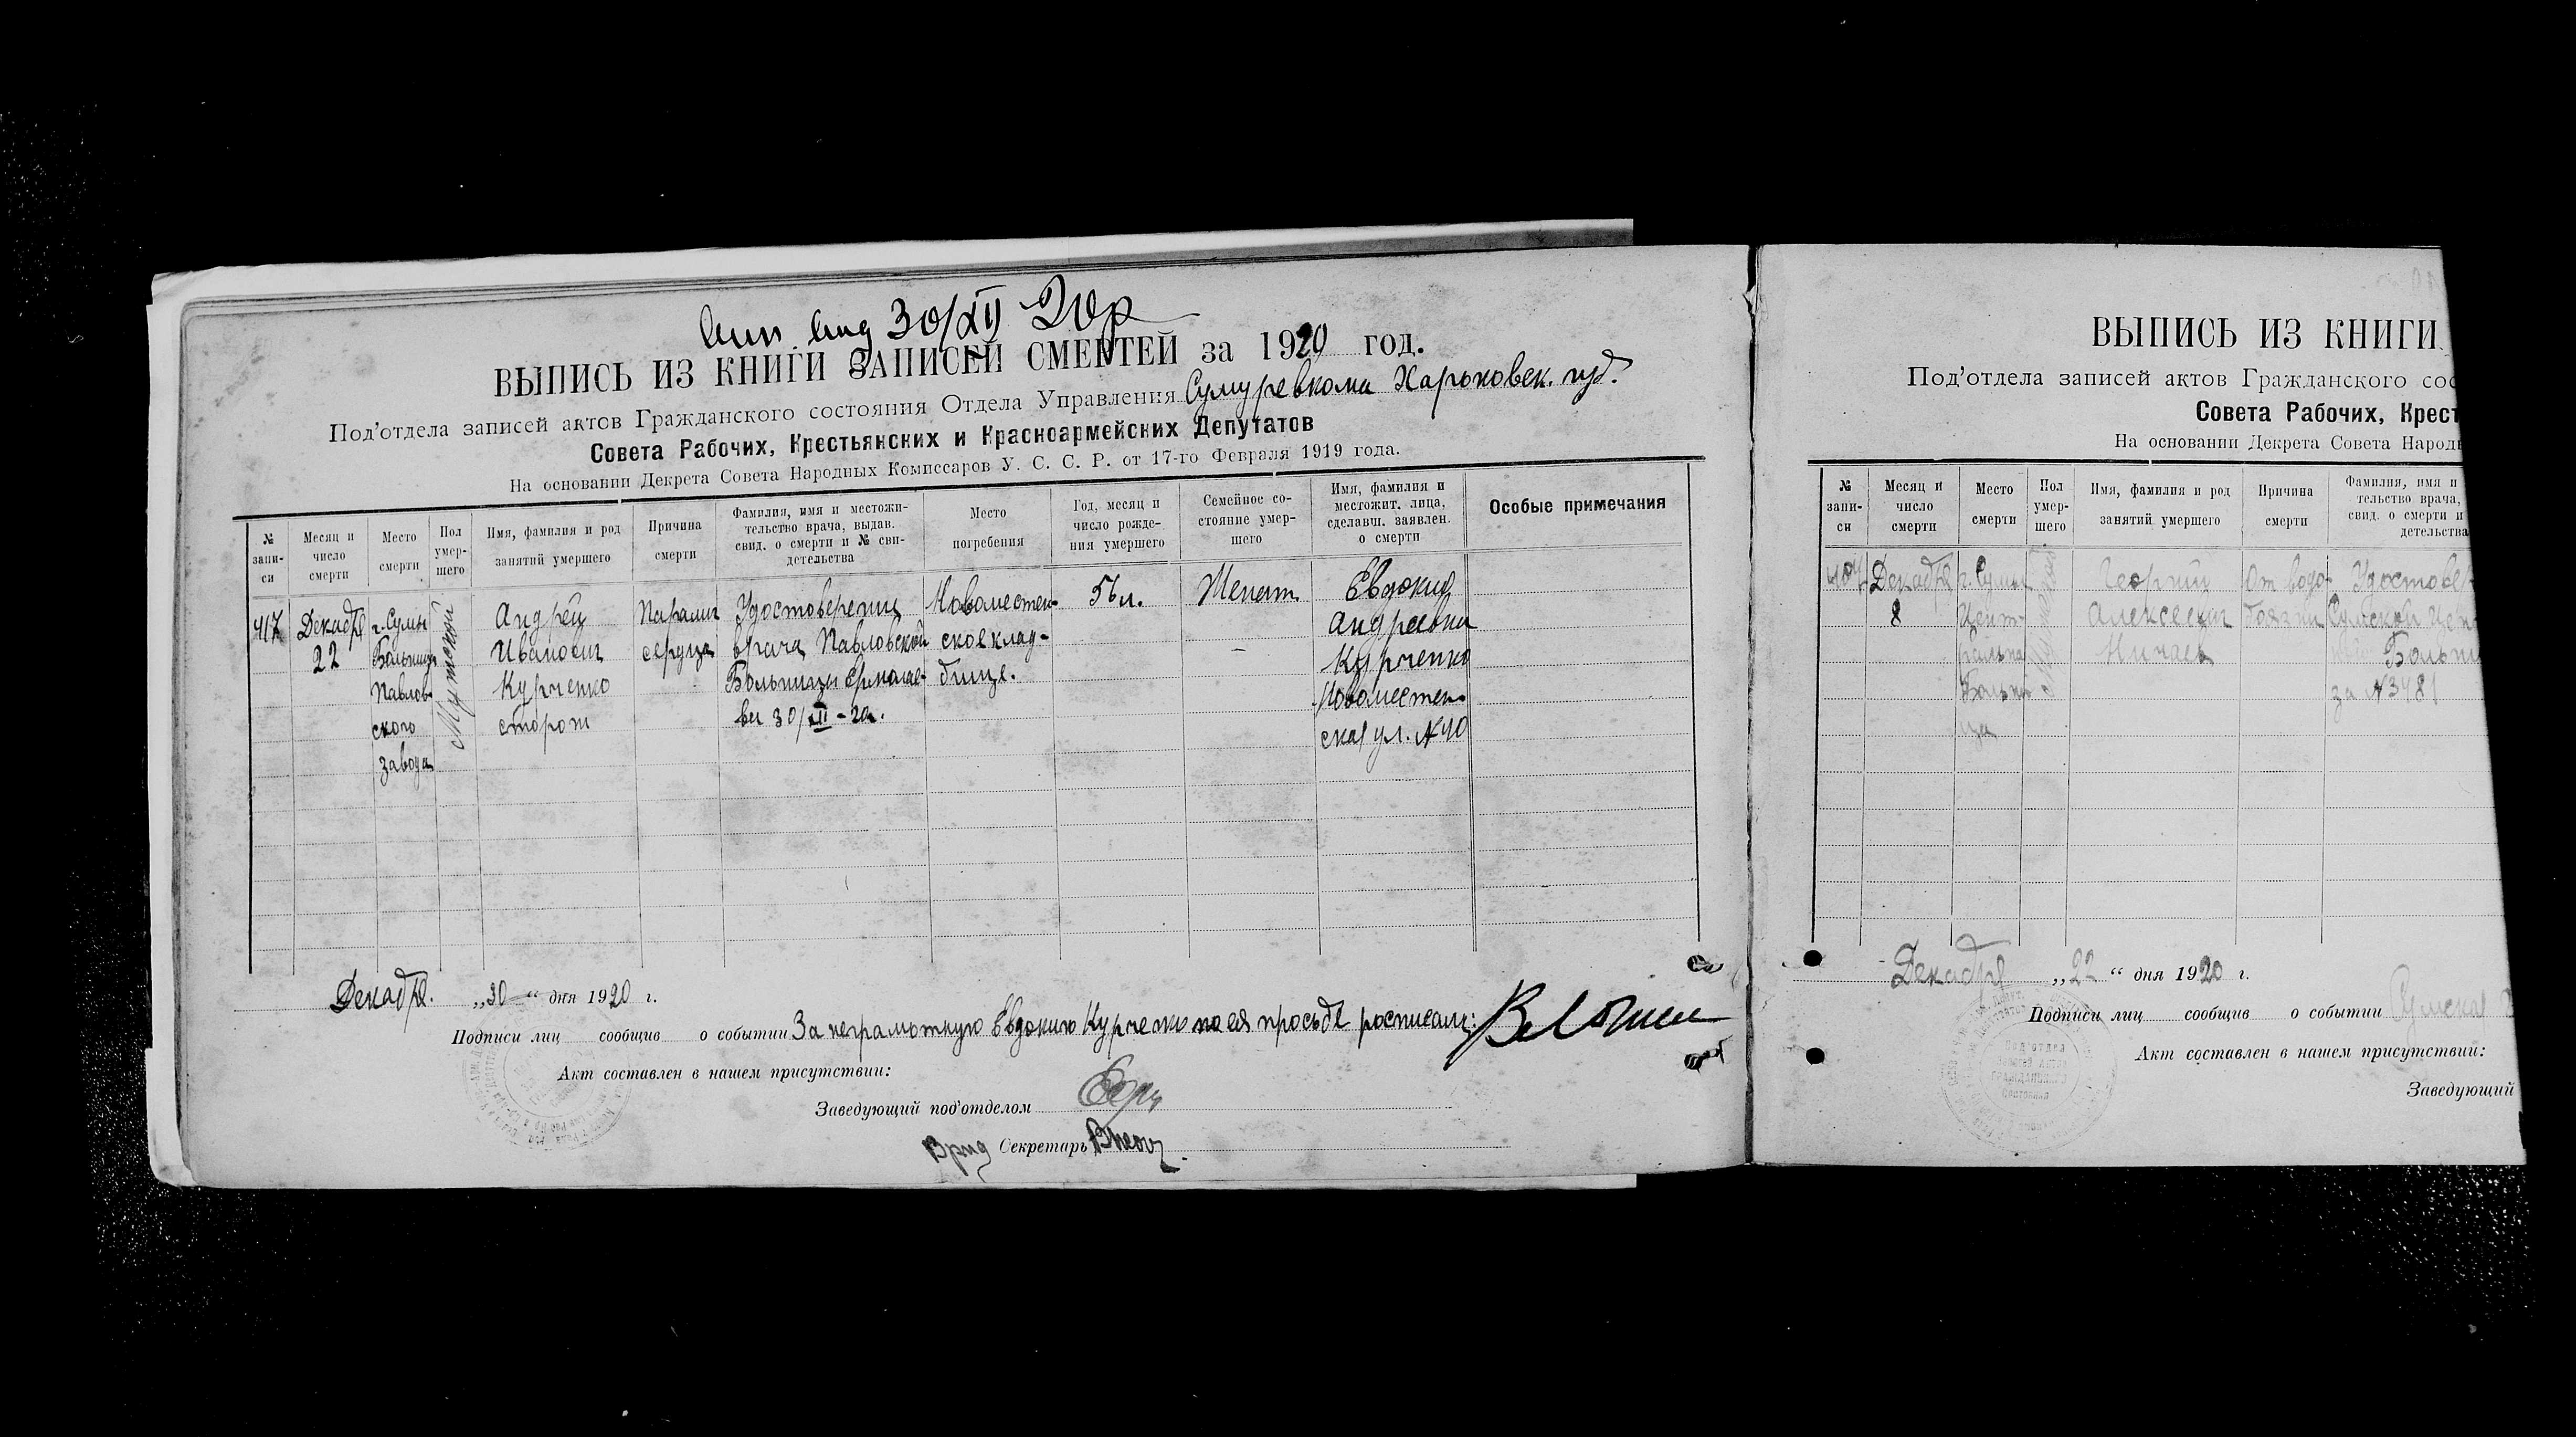 30/XII 20р
ВЫПИСЬ ИЗ КНИГИ ЗАПИСЕЙ СМЕРТЕЙ за 1920 год.
Под'отдела записей актов Гражданского состояния Отдела Управления Сумуревкома Харьковск. губ.
Совета Рабочих, Крестьянских и Красноармейских Депутатов
На основании Декрета Совета Народных Комиссаров У. С. С. Р. от 17-го Февраля 1919 года.
№ запи-си
Месяц и число смерти
Место смерти
Пол умер-шего
Имя, фамилия и род занятий умершего
Причина смерти
Фамилия, имя и местожи-тельство врача, выдав. свид. о смерти и № сви-детельства
Место погребения
Год, месяц и число рожде-ния умершего
Семейное со-стояние умер-шего
Имя, фамилия и местожит. лица, сделавш. заявлен. о смерти
Особые примечания
417
Декабря
22
г. Сумы
Больница
Павлов-
ского
завода
Мужской
Андрей
Иванович
Курченко
сторож
Паралич
сердца
Удостоверение
врача Павловской
Больницы Ермолае-
ва 30/XII-20г.
Новоместен-
ское клад-
бище.
56 л.
Женат
Евдокия
Андреевна
Курченко
Новоместен-
ская ул. №40
Декабря. „30" дня 1920 г.
Подписи лиц сообщив о событии За неграмотную Евдокию Курченко по ея просьбе росписалс:
Акт составлен в нашем присутствии:
Заведующий под'отделом
Врид Секретарь
ВЫПИСЬ ИЗ КНИГИ
Под'отдела записей актов Гражданского сос
Совета Рабочих, Крест
На основании Декрета Совета Народн
№ запи-си
Месяц и число смерти
Место смерти
Пол умер-шего
Имя, фамилия и род занятий умершего
Причина смерти
Фамилия, имя и
тельство врача,
свид. о смерти и
детельства
404
Декабря
8
г. Сумы
Цент-
ральна
Больни
ца
Георгий
Алексеевич
От водо-
боязни
Удостовер
Сумской Цен
Больни
за №3481
Декабря „22" дня 1920 г.
Подписи лиц сообщив о событии Сумская
Акт составлен в нашем присутствии:
Заведующий
Под'отдел
Гражданского
Состояния